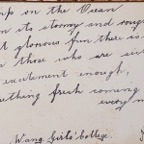 up on the Ocean
on its stormy and rough
t glorious fun there is
n those who are sick
excitement enough,
ething fresh coming
every m
Wang Girls' College